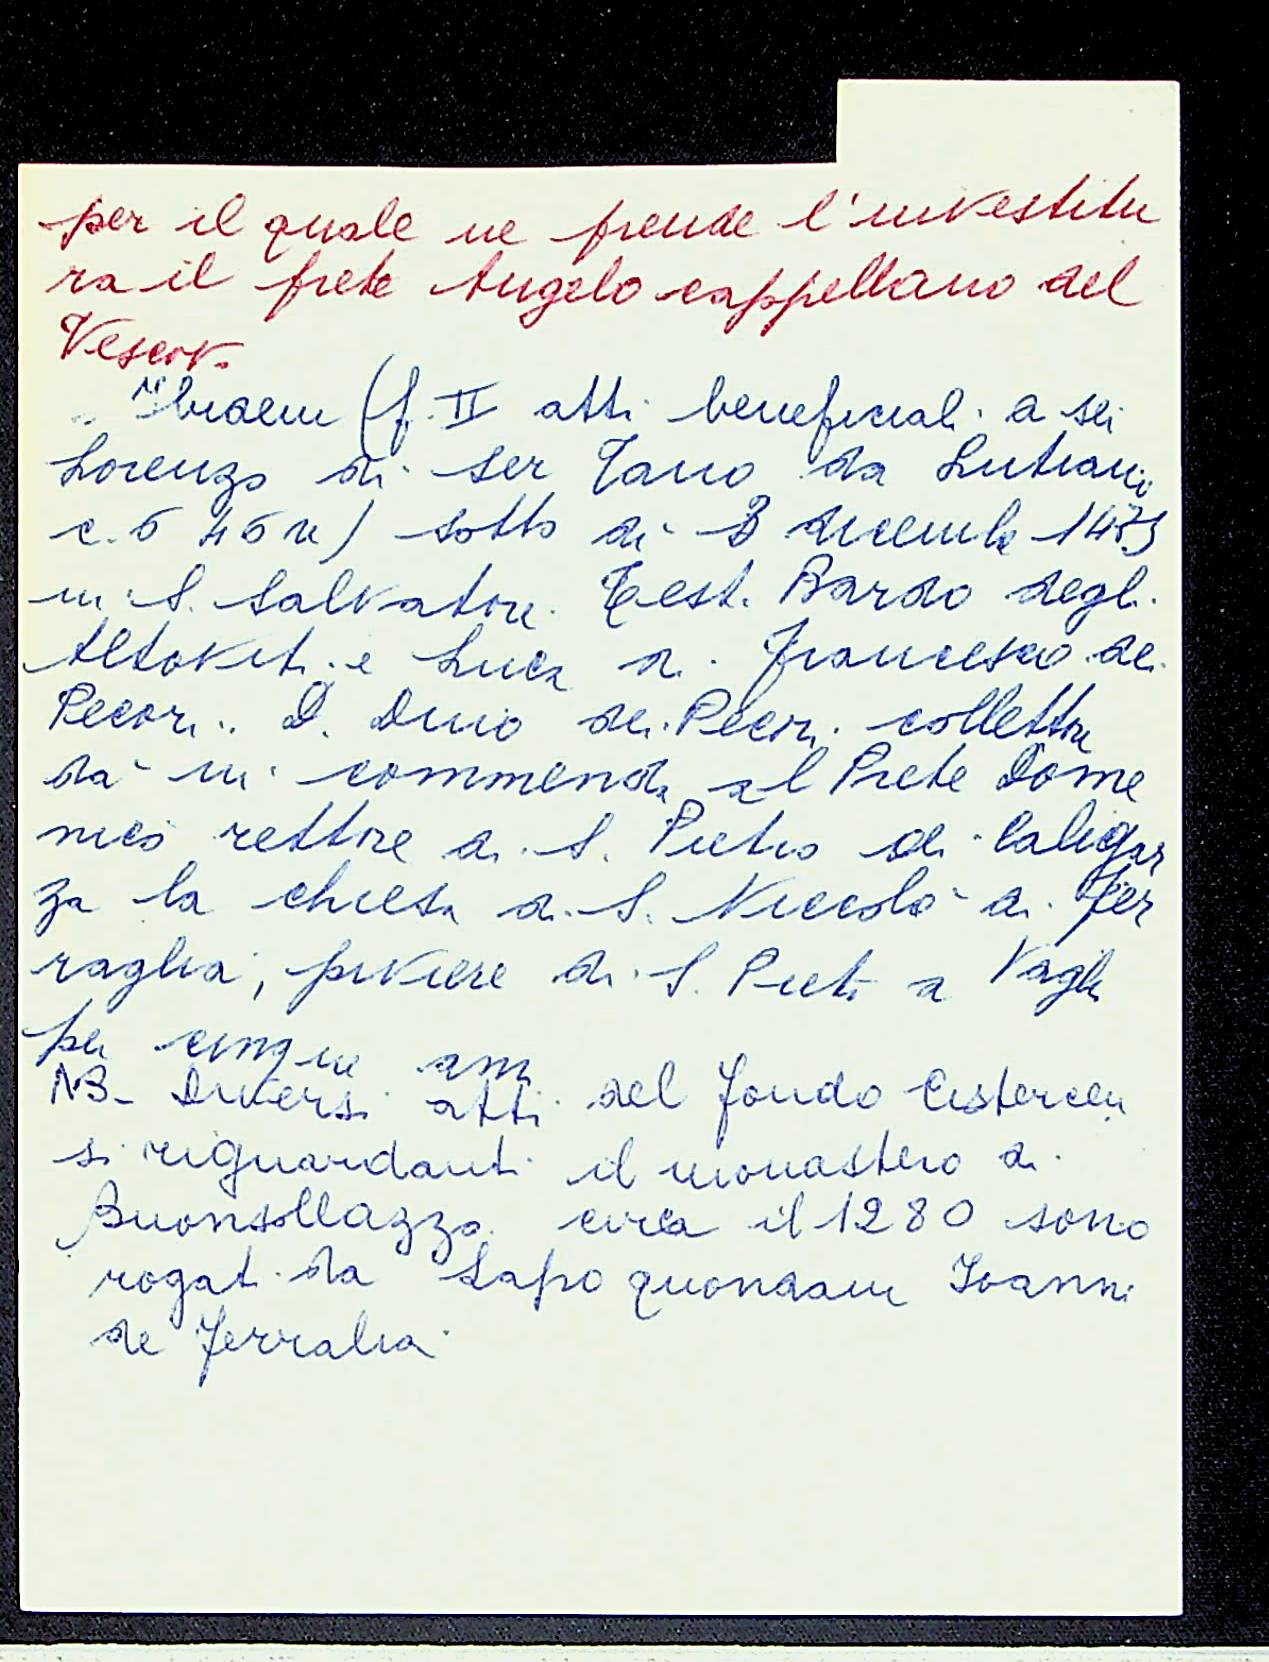 per il quale ne prende l'investitu
ra il prete Angelo cappellano del
Vescov.
Ibidem (f. II atti beneficiali di ser
Lorenzo di ser Tano da Lutiano
c. 546 n) sotto dì 3 decemb 1473
in S. Salvatore. Test. Bardo degli
Altoviti e Luca di Francesco de
Pecori. D. Dino dei Pecori collettore
dà in commenda al Prete Dome
nico rettore di S. Pietro di Caligar
za la chiesa di S. Niccolò di Fer
raglia, piviere di S. Pietro a Vaglia
per cinque anni
NB- Diversi atti del fondo Cistercen
si riguardanti il monastero di
Buonsollazzo circa il 1280 sono
rogati da Lapo quondam Ioanni
de Ferralia